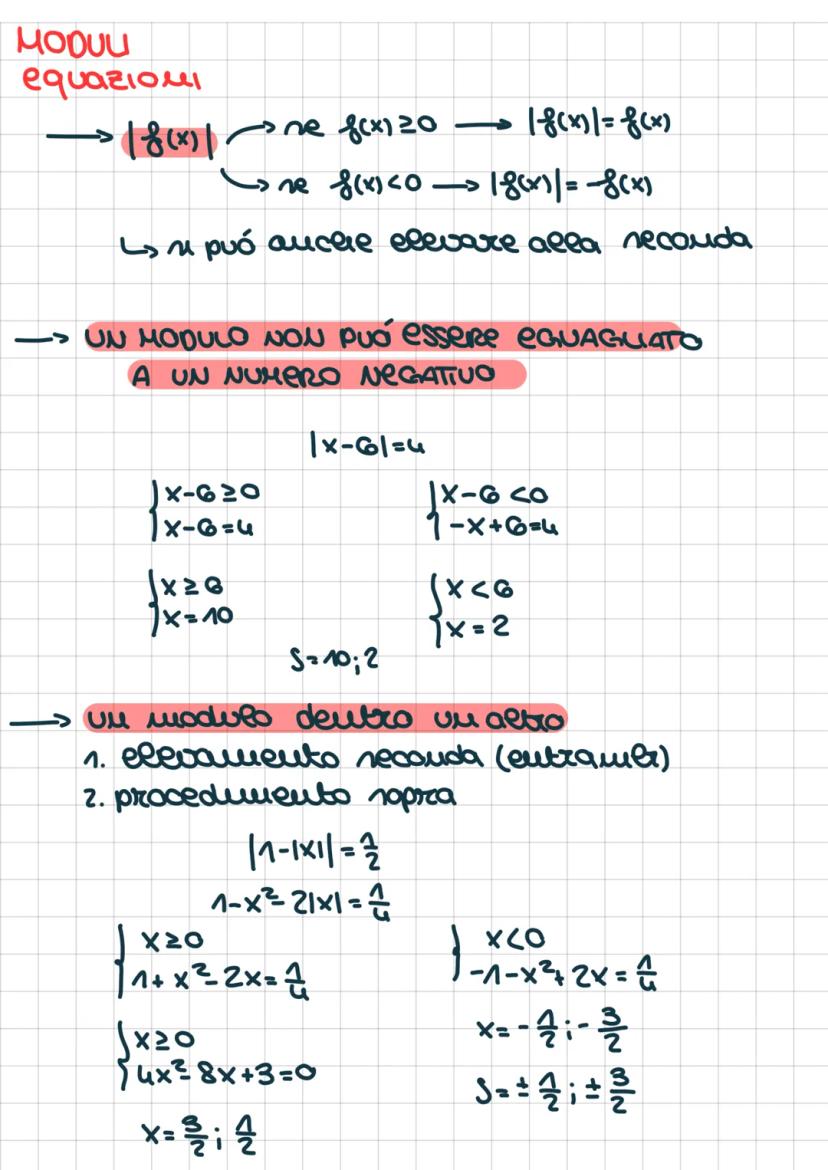 MODULI
equazioni
→ |f(x)| → se f(x) ≥ 0 → |f(x)| = f(x)
→ se f(x) < 0 → |f(x)| = -f(x)
↳ si puó anche elevare alla seconda
→ UN MODULO NON PUÓ ESSERE EGUAGLIATO
A UN NUMERO NEGATIVO
|x-6|=4
{x-6≥0 {x-6<0
x-6=4 -x+6=4
{x≥6 {x<6
x=10 x=2
S=10;2
→ un modulo dentro un altro
1. elevamento seconda (entrambi)
2. procedimento sopra
|1-|x||=1/2
1-x²-2|x|=1/4
{x≥0 {x<0
1+x²-2x=1/4 -1-x²+2x=1/4
{x≥0 x=-1/2;-3/2
4x²-8x+3=0 S=±1/2;±3/2
x=3/2;1/2